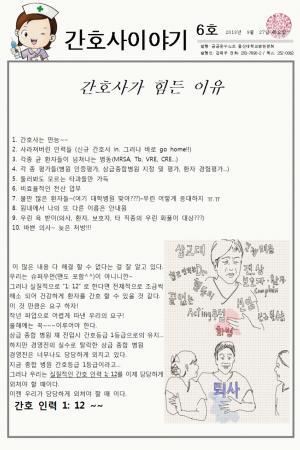 간호사이야기 6호
간호사가 힘든 이유
1. 간호사는 만능~~
2. 사라져버린 인력들 (신규 간호사 in. 그러나 바로 go home!!)
3. 각종 균 환자들이 넘쳐나는 병동(MRSA, Tb, VRE, CRE...)
4. 각 종 평가들(병원 인증평가, 상급종합병원 지정 및 평가, 환자 경험평가...)
5. 둘러봐도 모르는 타과들만 가득
6. 비효율적인 전산 업무
7. 불만 많은 환자들~(여기 대학병원 맞아???)-우린 어떻게 응대하지 ㅠ.ㅠ
8. 원내에서 나의 또 다른 이름은 안내원
9. 우린 욕 받이(의사, 환자, 보호자, 타 직종의 우린 화풀이 대상???)
10. 바쁜 의사~ 늦은 처방!!!
이 많은 내용 다 해결 할 수 없다는 걸 잘 알고 있다.
우리는 슈퍼우먼(맨도 포함^^)이 아니니깐~
그러나 실질적으로 "1: 12" 로 한다면 전체적으로 조금씩
해소 되어 건강하게 환자를 간호 할 수 있을 것 같다.
이 것 만큼은 요구 하자!
작년 파업으로 어렵게 따낸 우리의 요구!
올해에는 꼭~~~이루어야 한다.
상급 종합 병원 재 진입시 간호등급 1등급으로의 유지...
하지만 경영진의 실수로 탈락한 상급 종합 병원
경영진은 너무나도 당당하게 외치고 있다.
지금 종합 병원 간호등급 1등급이라고...
그러나 우리는 실질적인 간호 인력 1: 12를 이제 당당하게
외쳐야 할 때이다.
이젠 우리가 당당하게 외쳐야 할 때 이다.
간호 인력 1: 12 ~~
퇴사